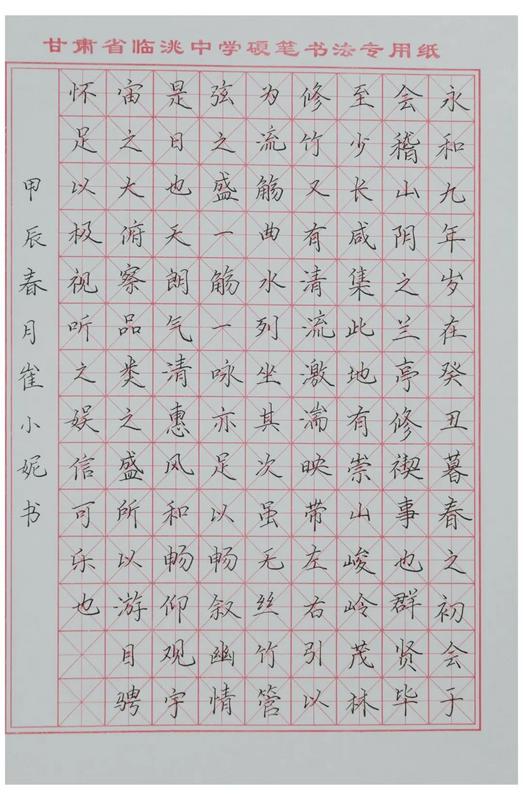 甘肃省临洮中学硬笔书法专用纸
永和九年岁在癸丑暮春之初会于
会稽山阴之兰亭修禊事也群贤毕
至少长咸集此地有崇山峻岭茂林
修竹又有清流激湍映带左右引以
为流觞曲水列坐其次虽无丝竹管
弦之盛一觞一咏亦足以畅叙幽情
是日也天朗气清惠风和畅仰观宇
宙之大俯察品类之盛所以游目骋
怀足以极视听之娱信可乐也
甲辰春月崔小妮书